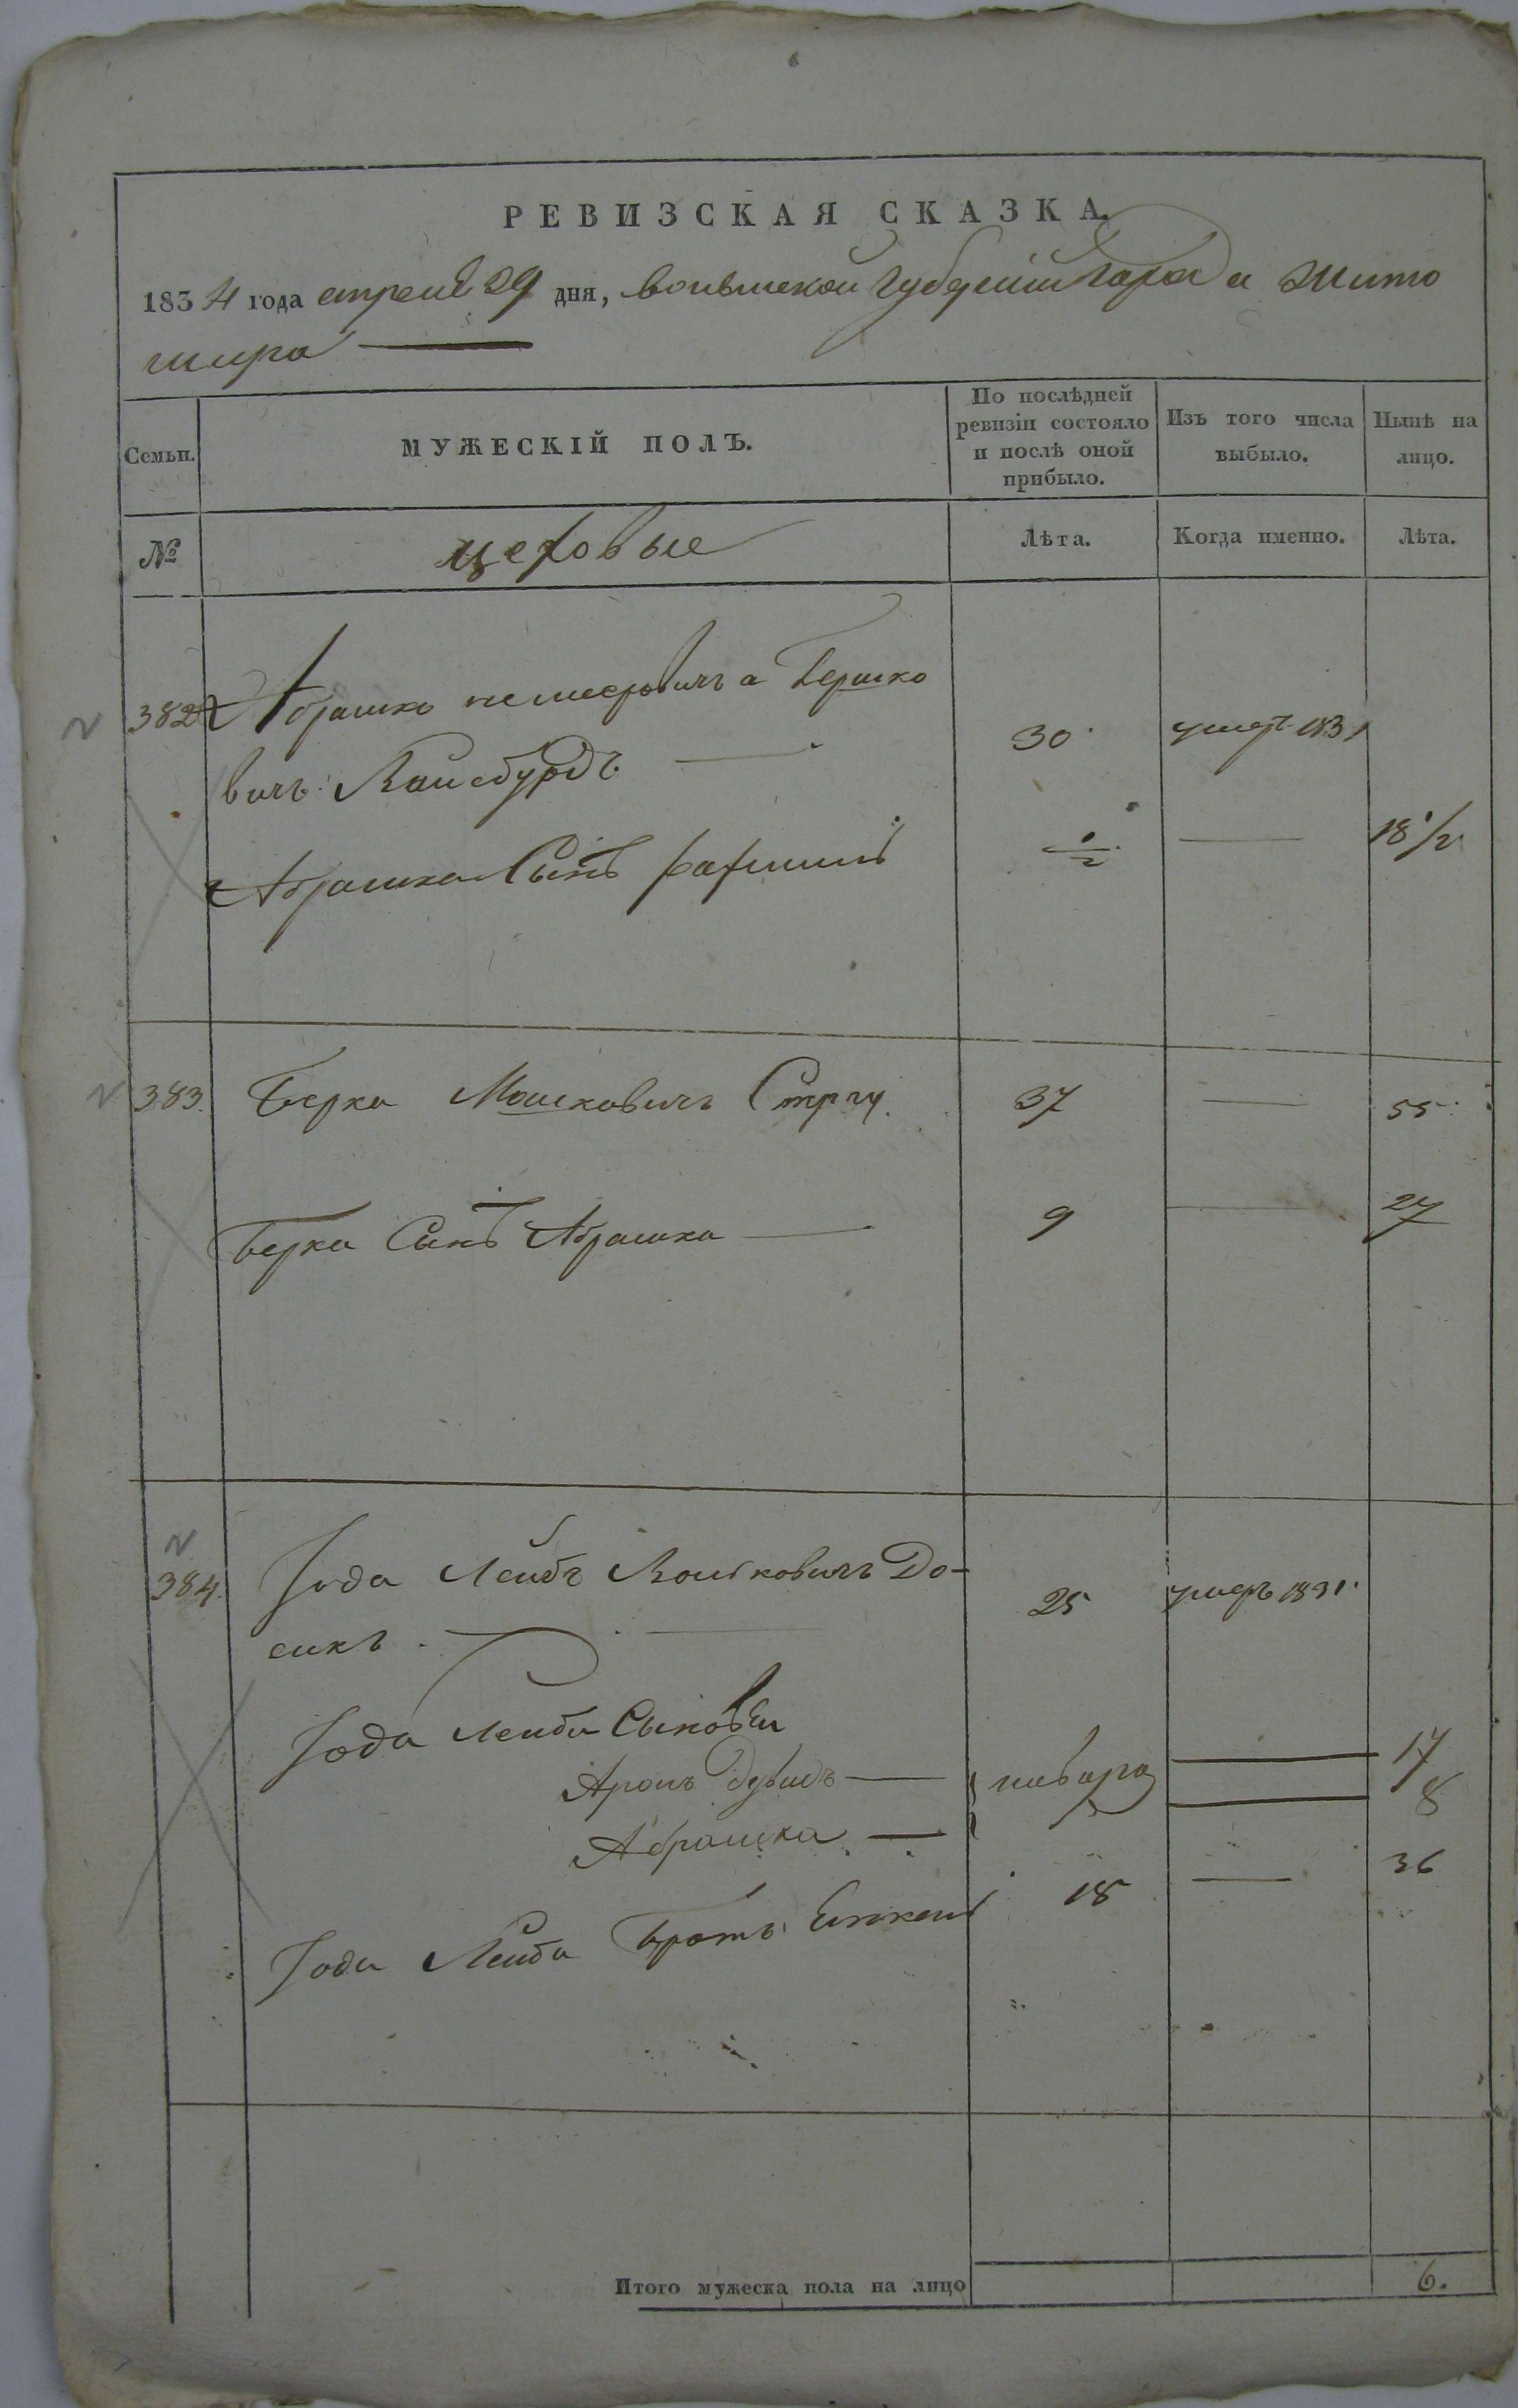 РЕВИЗСКАЯ СКАЗКА.
1834 года апреля 29 дня, волынской губернии города Жито
мира
Семьи.
МУЖЕСКІЙ ПОЛЪ.
По послѣдней
ревизіи состояло
и послѣ оной
прибыло.
Изъ того числа
выбыло.
Нынѣ на
лицо.
№
цеховые
Лѣта.
Когда именно.
Лѣта.
382
Абрашко а Гершко
вичъ
30
умеръ 1831
Абрашка Сынъ
1/2
18 1/2
383.
Берка Мошковичъ
37
55
Берка Сынъ Абрашка
9
27
384.
Іода Лейбъ До-
сикъ
25
умеръ 1831
Іода Лейби Сыновья
Аронъ Дувидъ
17
Абрашка
8
Іоди Лейба Братъ
18
36
Итого мужеска пола на лицо
6.